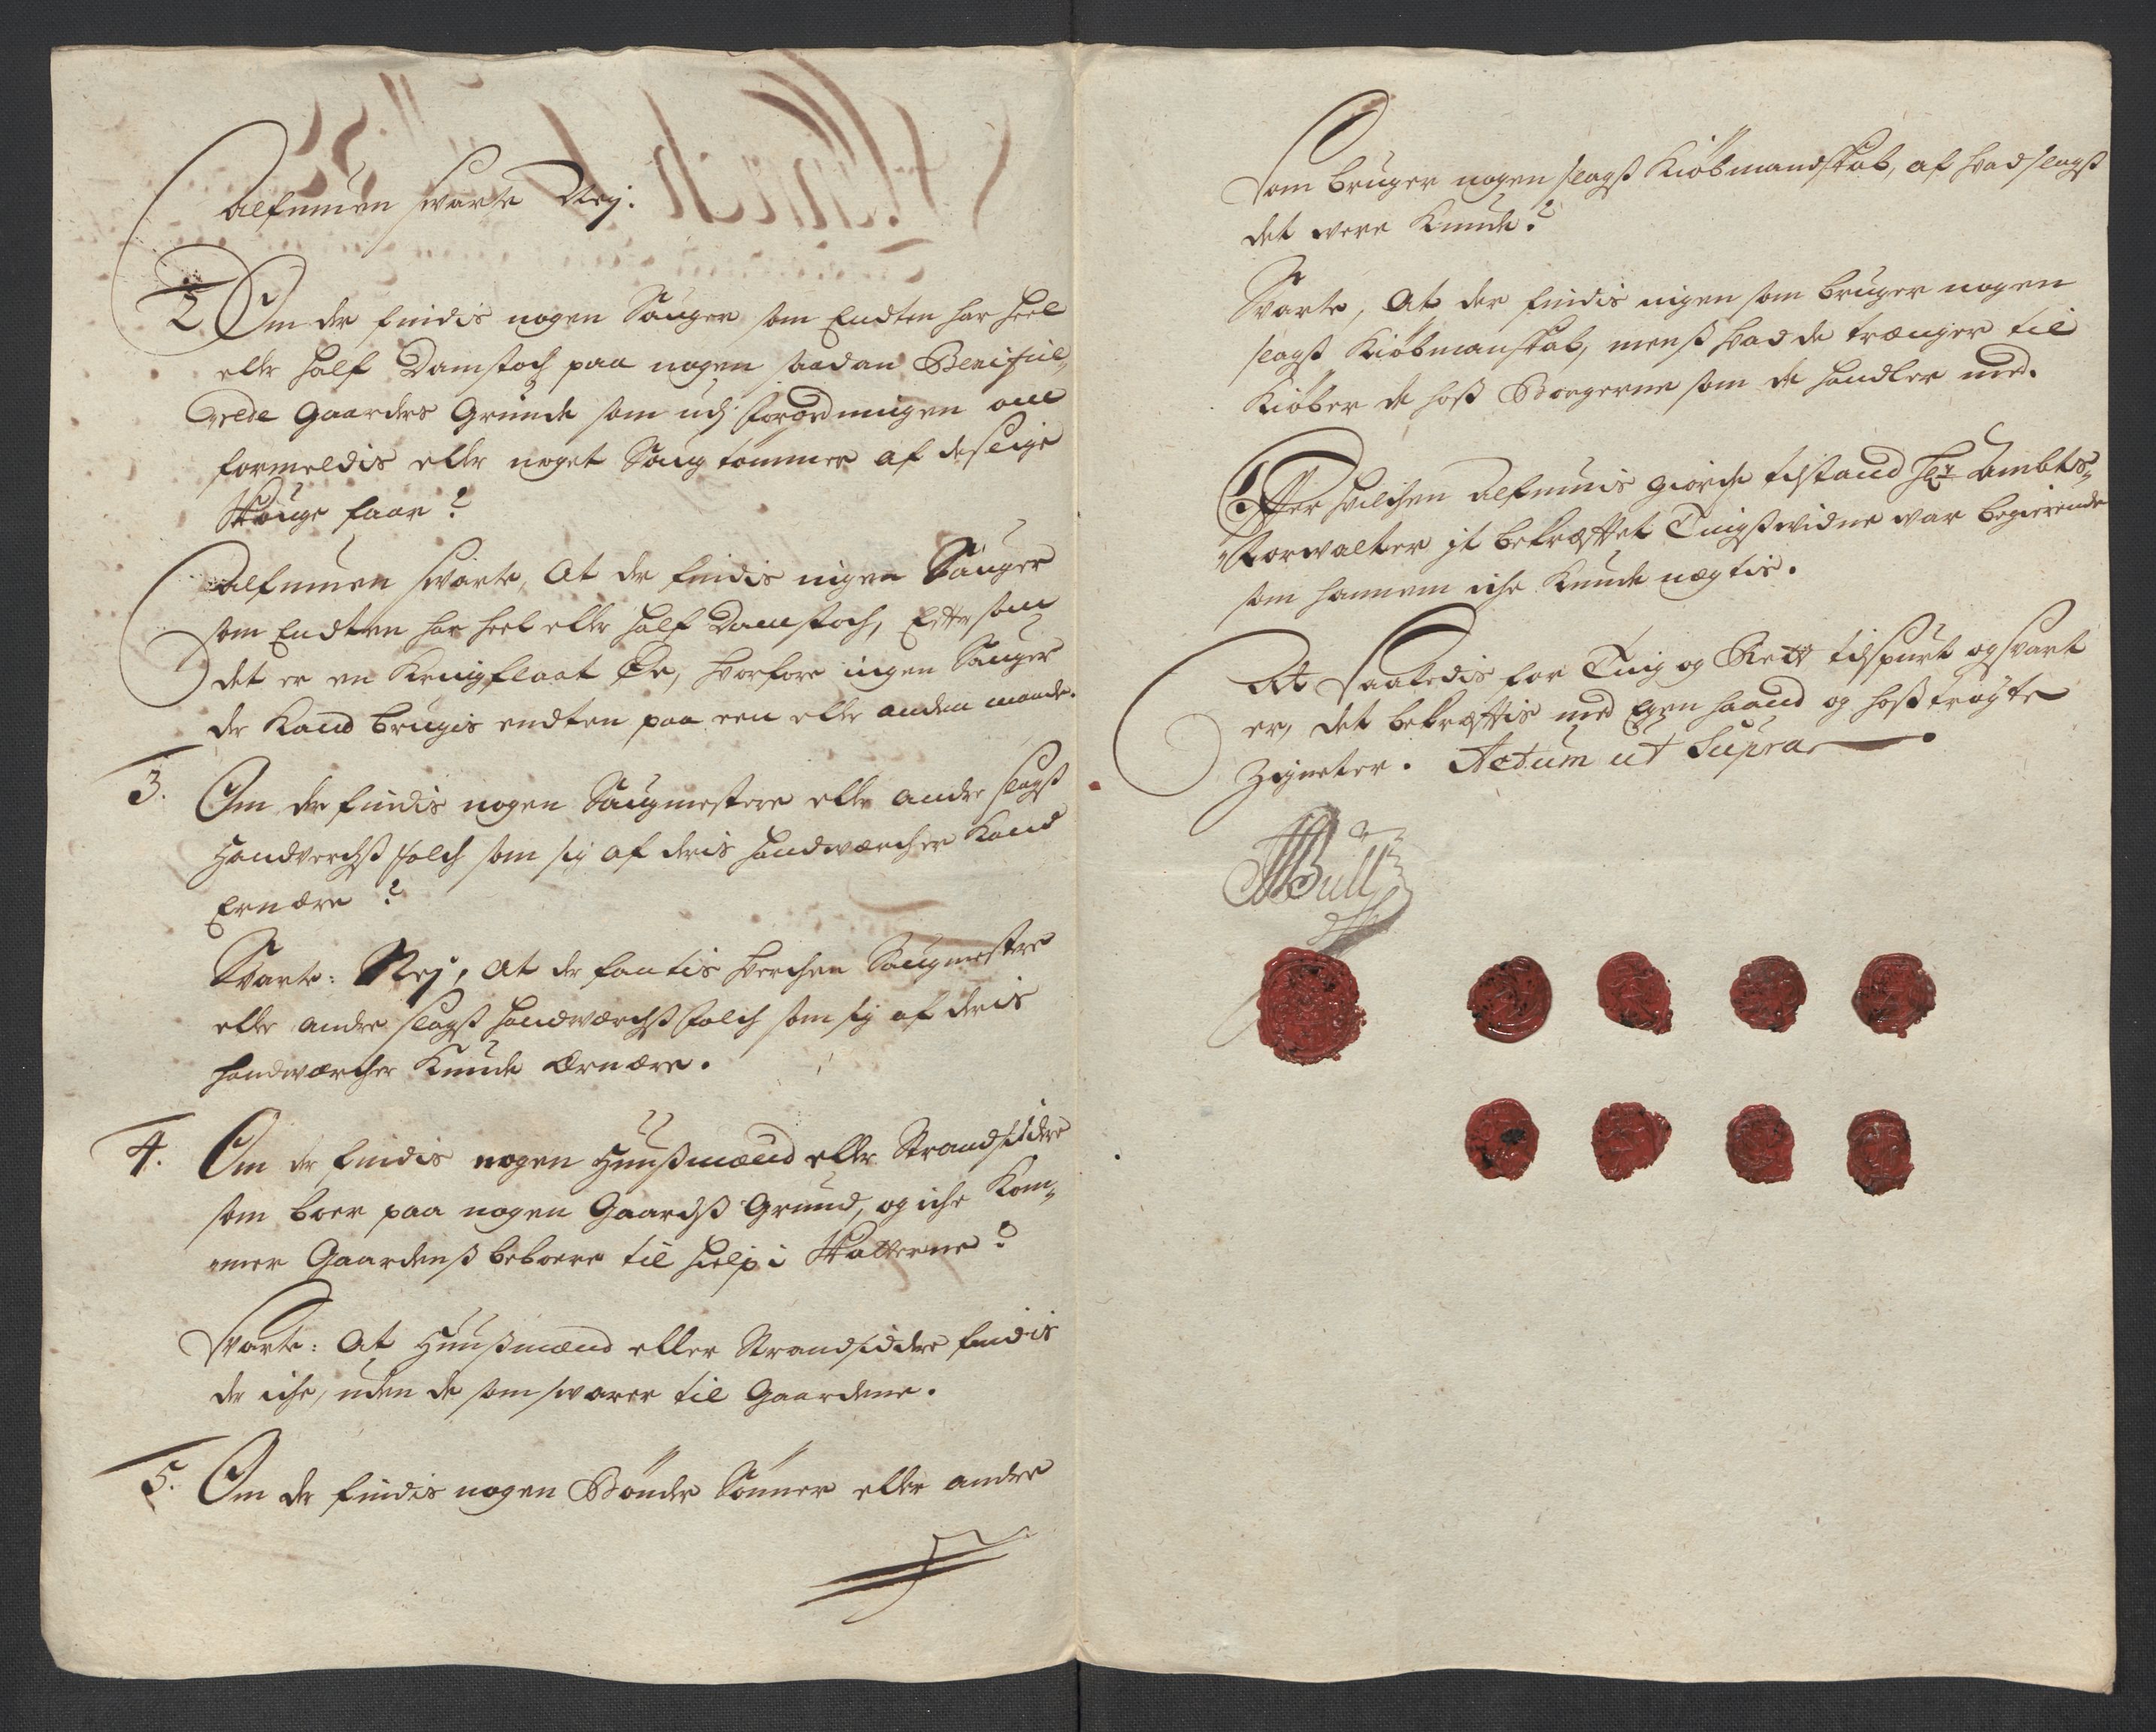 Alfmuen svarte Nej.
2 Om der findis nogen Sauger som Endten har heel
eller half Damstoch paa nogen saadan Benificee,,
rede Gaarders Grunde som udj forordningen om
formeldis eller noget Saug tømmer af deslige
Skouge faar?
Alfmuen svarte, At der findis ingen Sauger
som Endten har heel eller half Damstoch, Efttersom
det er en flaat Øe, hvorfore ingen Sauger
der Kand brugis endten paa een eller anden maade.
3. Om der findis nogen Saugmestere eller andre slagß
Handverchß folch som sig af deris handværcher Kand
Ernære?
Svarte: Nej, At der fantis hverchen Saugmestere
eller andre slagß handværchß folch som sig af deris
handværcher Kunde Ernære.
4. Om der findis nogen Huußmænd eller Strandsiddere
som boer paa nogen Gaardß Grund, og iche Kom,,
mer Gaardenß beboere til hielp i Skatterne?
Svarte: At Huußmænd eller Strandsiddere findis
der iche, uden de som svarer til Gaardene.
5. Om der findis nogen Bønder Sønner eller andre
Som bruger nogen slagß Kiøbmandskab, af hvad slagß
det være Kunde?
Svarte, At der findis ingen som bruger nogen
slagß Kiøbmanskab, menß hvad de trænger til
Kiøber de hoß Borgerne som de handler med.
Efter hvilchen Alfmuis giorde tilstand Hr Ambts,,
Forvalter it bekræfttet Tingßvidne var begierende
som hannem iche Kunde nægtis.
At Saaledis for Ting og Rett tilspurt og svart
er, det bekræfttis med Egen haand og hoßtrøgte
Zigneter. Actum ut Supra
ABull